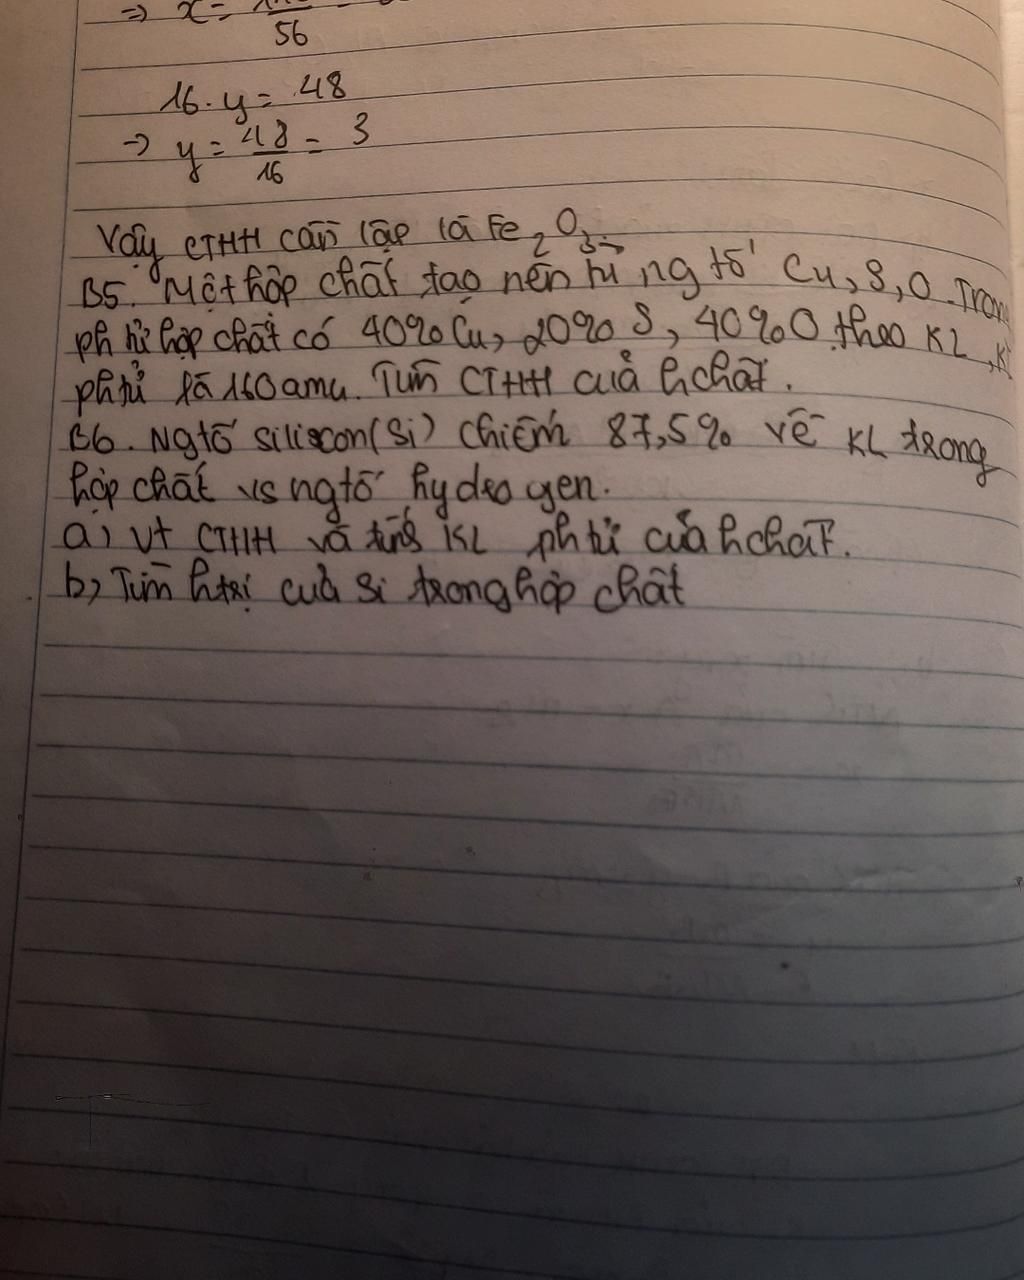 => x =
56
16. y = 48
-> y = 48/16 = 3
Vậy CTHH cần lập là Fe2O3
B5. Một hợp chất tạo nên từ ng tố Cu, S, O. Trong
ph tử hợp chất có 40% Cu, 20% S, 40% O theo KL, K
ph tử là 160 amu. Tìm CTHH của hchất.
B6. Ng tố siliscon (Si) chiếm 87,5% về KL trong
hợp chất vs ng tố hydrogen.
a) vt CTHH và tính KL ph tử của hchất.
b) Tìm htrị của Si trong hợp chất